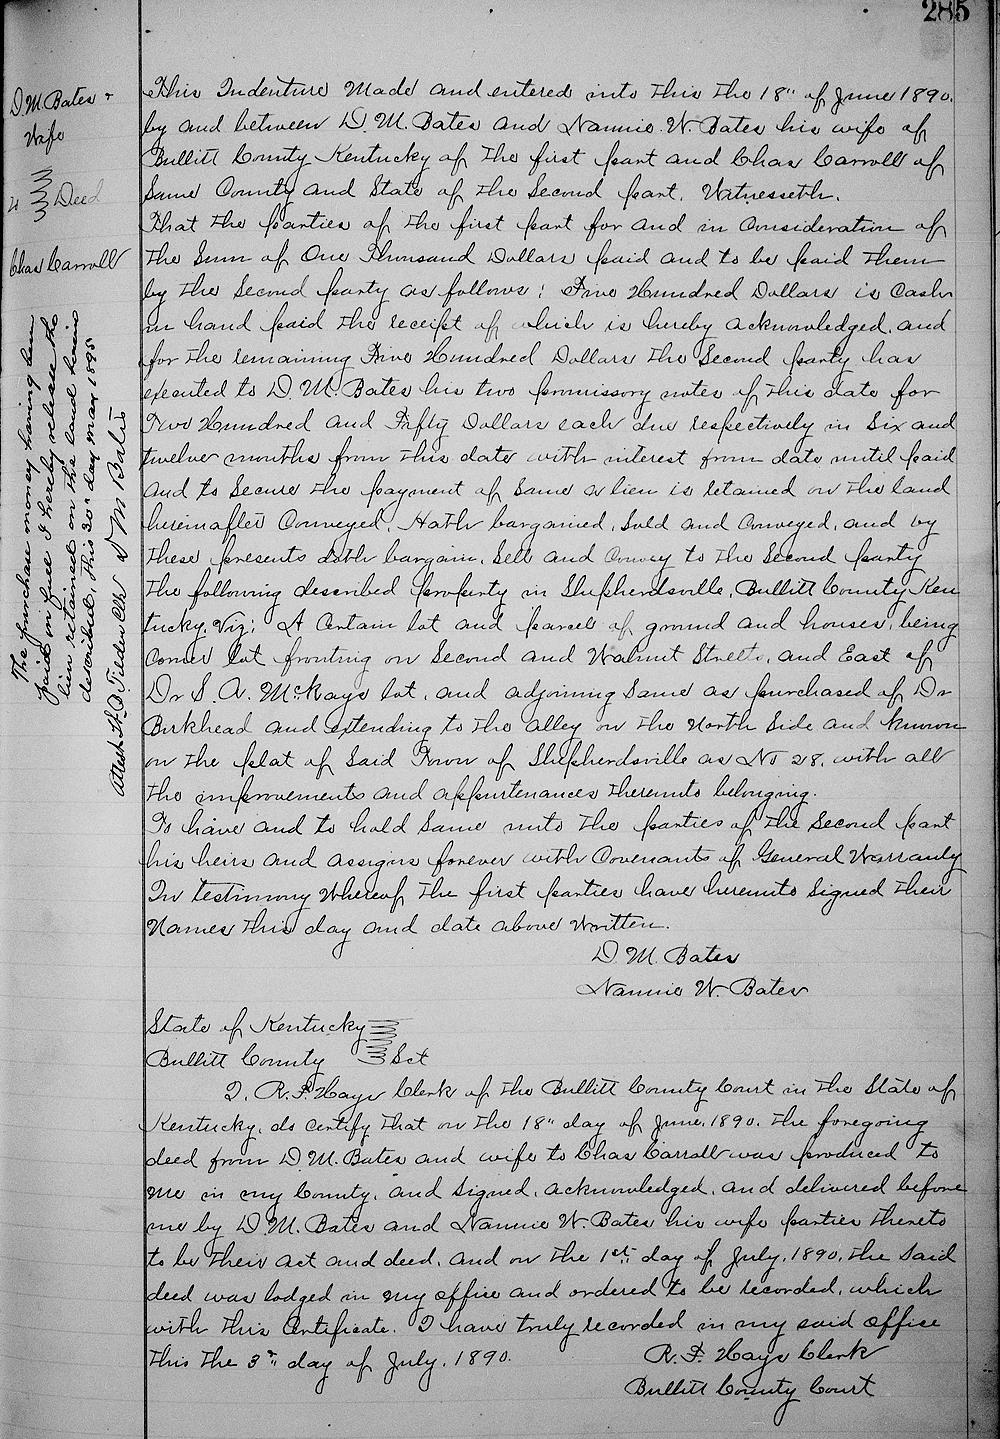 285
D. M. Bates &
Wife
to } Deed
Chas Carroll
The purchase money having been
paid in full I hereby release the
lien retained on the land herein
described, this 30" day May 1895
D M Bates
Attest H. D. Tilden Clk
This Indenture Made and entered into this the 18" of June 1890.
by and between D. M. Bates and Nannie W. Bates his wife of
Bullitt County Kentucky of the first part and Chas Carroll of
Same County and State of the Second part. Witnesseth.
That the parties of the first part for and in Consideration of
the Sum of One Thousand Dollars paid and to be paid them
by the Second party as follows: Five Hundred Dollars is Cash
in hand paid the receipt of which is hereby acknowledged, and
for the remaining Five Hundred Dollars the Second party has
executed to D. M. Bates his two promissory notes of this date for
Two Hundred and Fifty Dollars each due respectively in Six and
twelve months from this date with interest from date until paid
and to Secure the payment of Same a lien is retained on the land
hereinafter Conveyed. Hath bargained, Sold and Conveyed, and by
these presents doth bargain, Sell and Convey to the Second party
the following described property in Shepherdsville, Bullitt County Ken
tucky, Viz; A Certain lot and parcel of ground and houses, being
Corner lot fronting on Second and Walnut Streets, and East of
Dr S. A. McKays lot, and adjoining Same as purchased of Dr
Birkhead and extending to the alley on the North Side and known
on the plat of Said Town of Shepherdsville as No 28, with all
the improvements and appurtenances thereunto belonging.
To have and to hold Same unto the parties of the Second part
his heirs and assigns forever with Covenants of General Warranty
In testimony Whereof the first parties have hereunto Signed their
Names this day and date above Written.
D. M. Bates
Nannie W. Bates
State of Kentucky }
Bullitt County } Sct
I, R. F. Hays Clerk of the Bullitt County Court in the State of
Kentucky, do certify that on the 18" day of June, 1890, the foregoing
deed from D. M. Bates and wife to Chas Carroll was produced to
me in my County, and Signed, acknowledged, and delivered before
me by D. M. Bates and Nannie W. Bates his wife parties thereto
to be their act and deed, and on the 1st day of July, 1890, the Said
deed was lodged in my office and ordered to be recorded, which
with this Certificate. I have truly recorded in my said office
this the 3" day of July, 1890.
R. F. Hays Clerk
Bullitt County Court